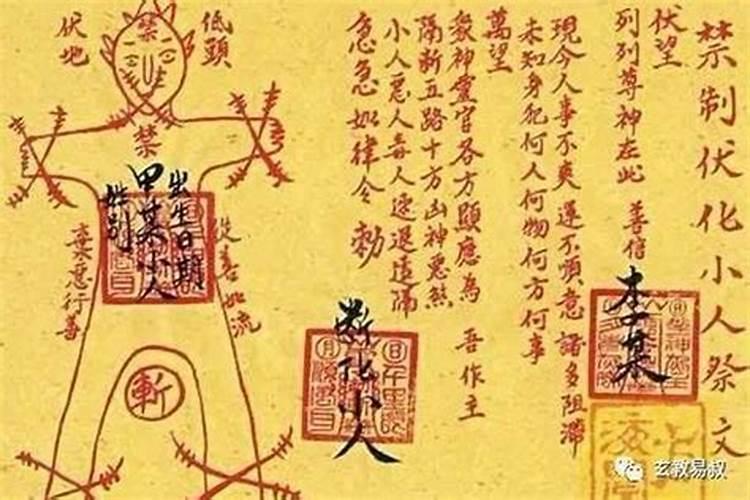 禁制伏化小人祭文
伏望
列列尊神在此 善信 李某
現今人事不爽運不順意諸多阻滯
未知身犯何人何物何方何事
萬望
衆神靈官各方顯應為 吾作主
隔断五路十方凶神惡煞
小人惡人毒人速退遠隔
急急如律令 勅
断化小人
低頭
禁
伏地
禁
出生日期
甲某小人
姓别
從善如流
棄惡行善
斬
玄教易叔